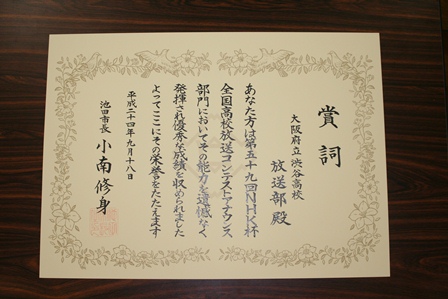 賞詞
大阪府立渋谷高校
放送部殿
あなた方は第五十九回NHK杯
全国高校放送コンテストアナウンス
部門においてその能力を遺憾なく
発揮され優秀な成績を収められました
よってここにその栄誉をたたえます
平成二十四年九月十八日
池田市長 小南修身